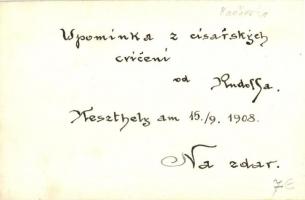 Upomínka z císařských
cvičení
od Rudolfa.
Keszthely am 15./9. 1908.
Na zdar.
7€